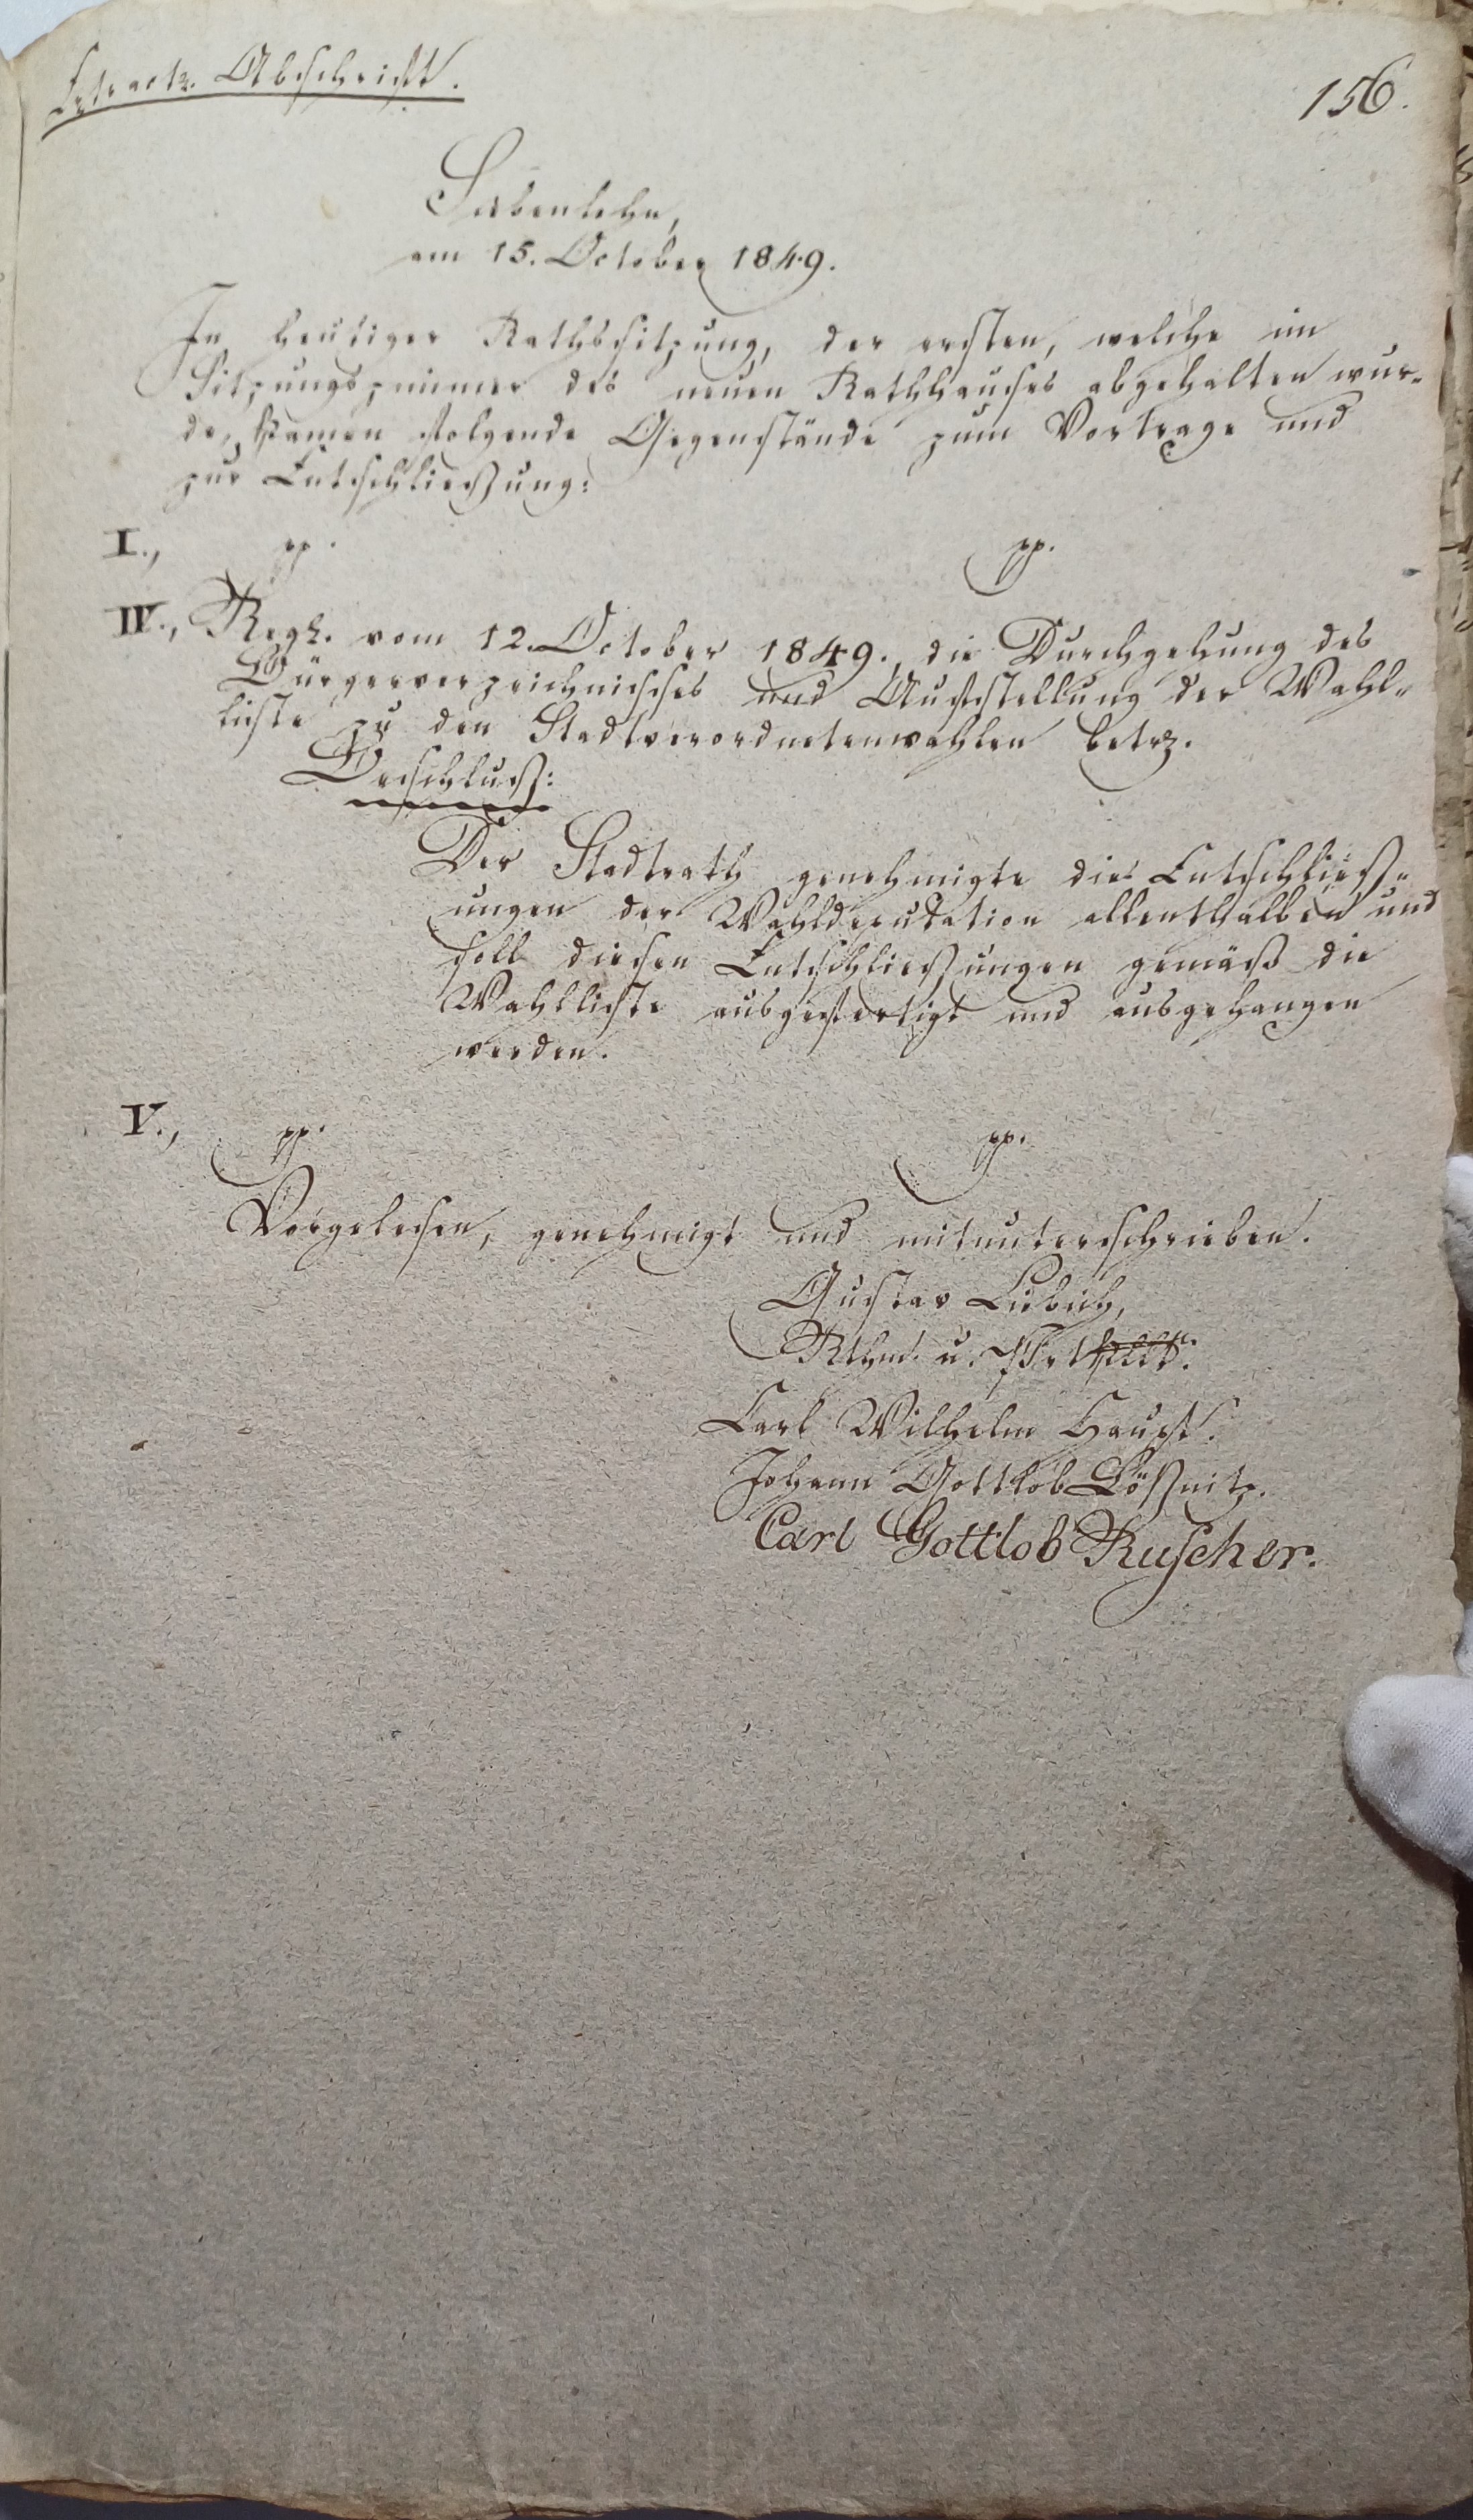 Extract. Abschrift.
156.
Siebenlehn,
am 15. October 1849.
In heutiger Rathssitzung, der ersten, welche im
Sitzungszimmer des neuen Rathhauses abgehalten wur-
de, kamen folgende Gegenstände zum Vortrage und
zur Entschließung:
I., pp. pp.
IV., Regs. vom 12. October 1849., die Durchgehung des
Bürgerverzeichnisses und Aufstellung der Wahl-
liste zu den Stadtverordnetenwahlen betr.
Beschluß:
Der Stadtrath genehmigte die Entschließ-
ungen der Wahldeputation allenthalben und
soll diesen Entschließungen gemäß die
Wahlliste ausgefertigt und ausgehangen
werden.
V., pp. pp.
Vorgelesen, genehmigt und mitunterschrieben.
Gustav Liebich,
u.
Carl Wilhelm Haupt.
Johann Gottlob Lößnitz.
Carl Gottlob Ruscher.